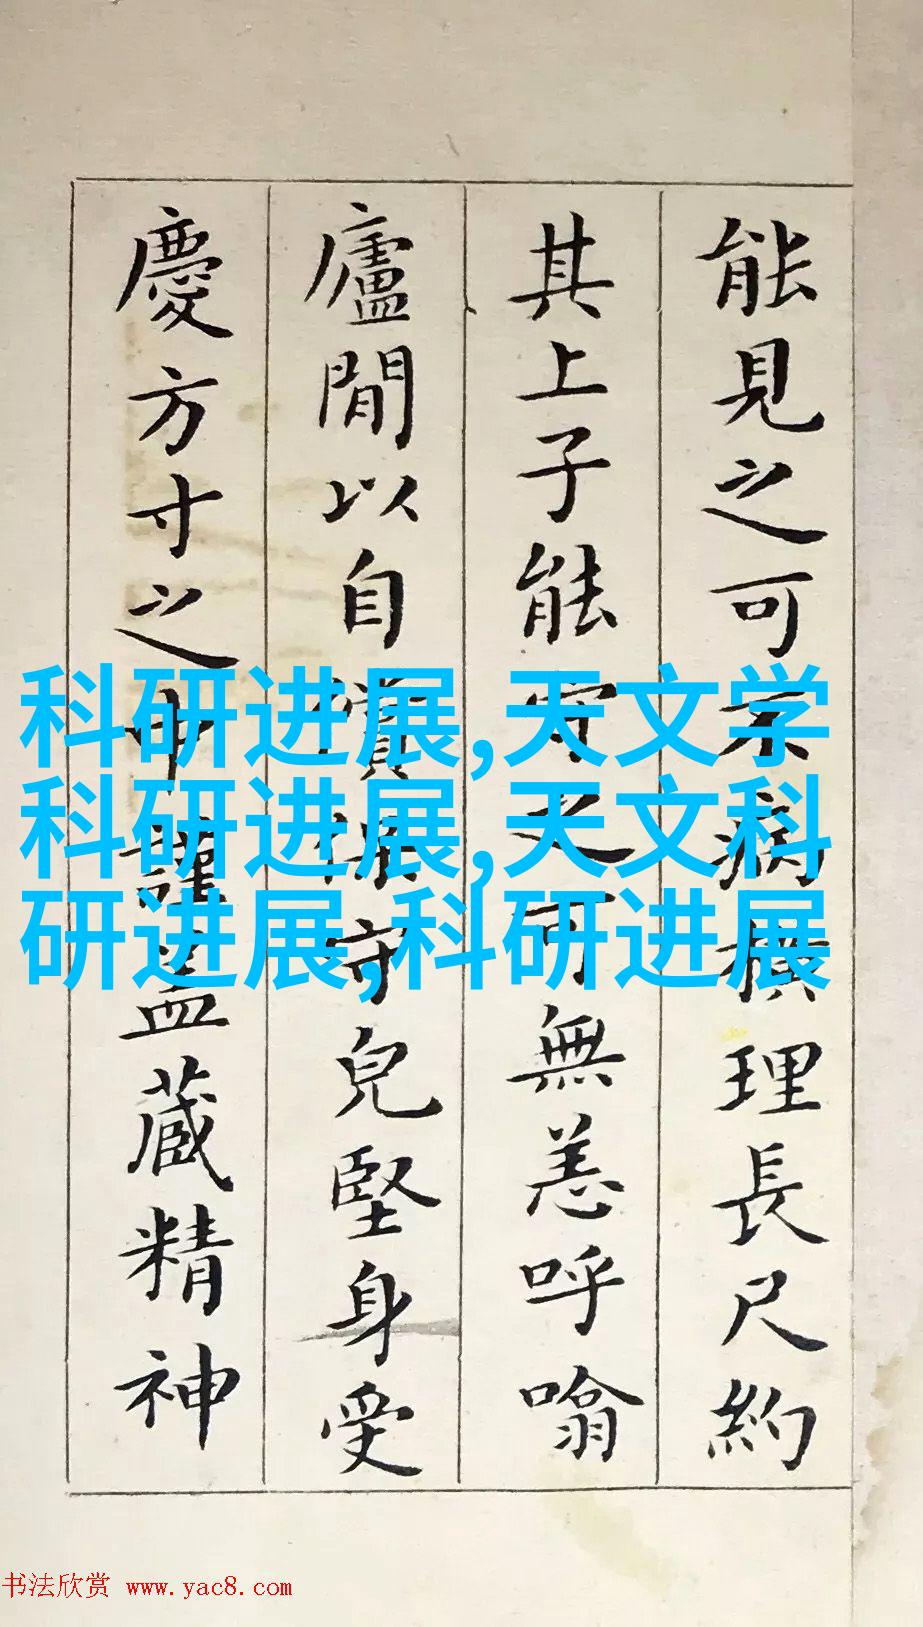 能見之可不病橫理長尺約
其上子能守之可無恙呼噏
廬閒以自償保守兒堅身受
慶方寸之中謹盖藏精神
科研进展,天文学
科研进展,天文科
研进展,科研进展
书法欣赏 www.yac8.com